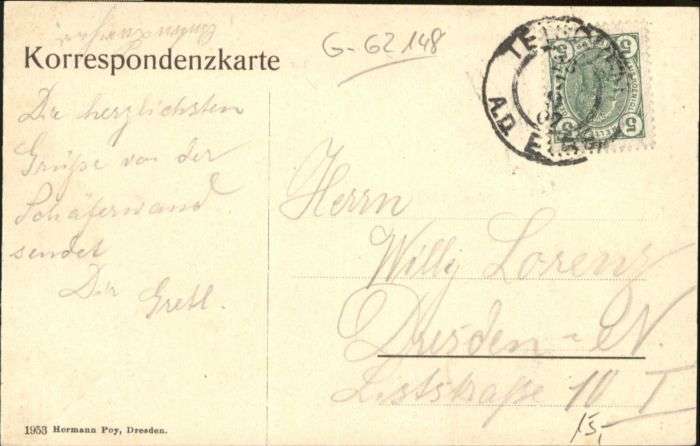 G-62148
Korrespondenzkarte
TETSCHEN
A.D. E
5 5
5 5
Die herzlichsten
Grüße von der
Schäferwand
sendet
Dir Gretl.
Herrn
Willy Lorenz
Dresden-N.
Liststraße 10 I
15-
1953 Hermann Poy, Dresden.